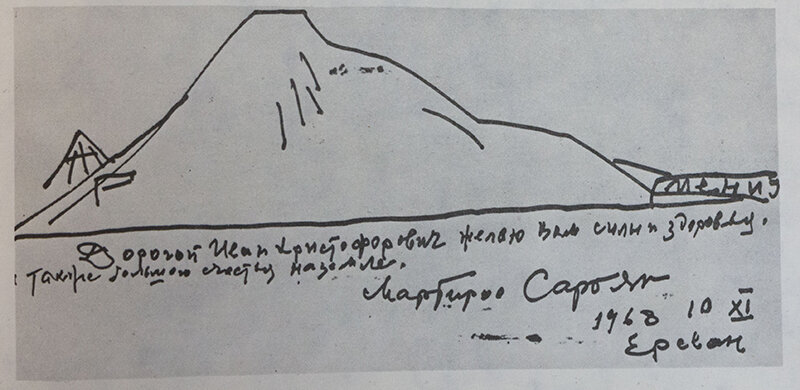 Дорогой Иван Христофорович желаю Вам силы и здоровья.
также большого счастья на земле.
Мартирос Сарьян
1968 10 XI
Ереван